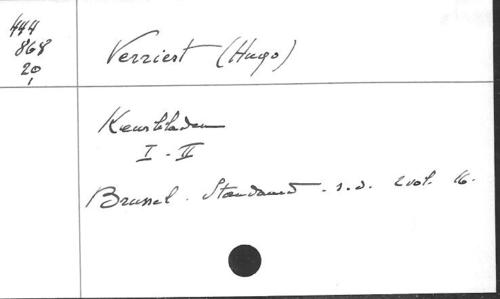 444
868
20
Verriest (Hugo)
Keurbladen
I - II
Brussel. Standaard. s.d. 2 vol. 16.